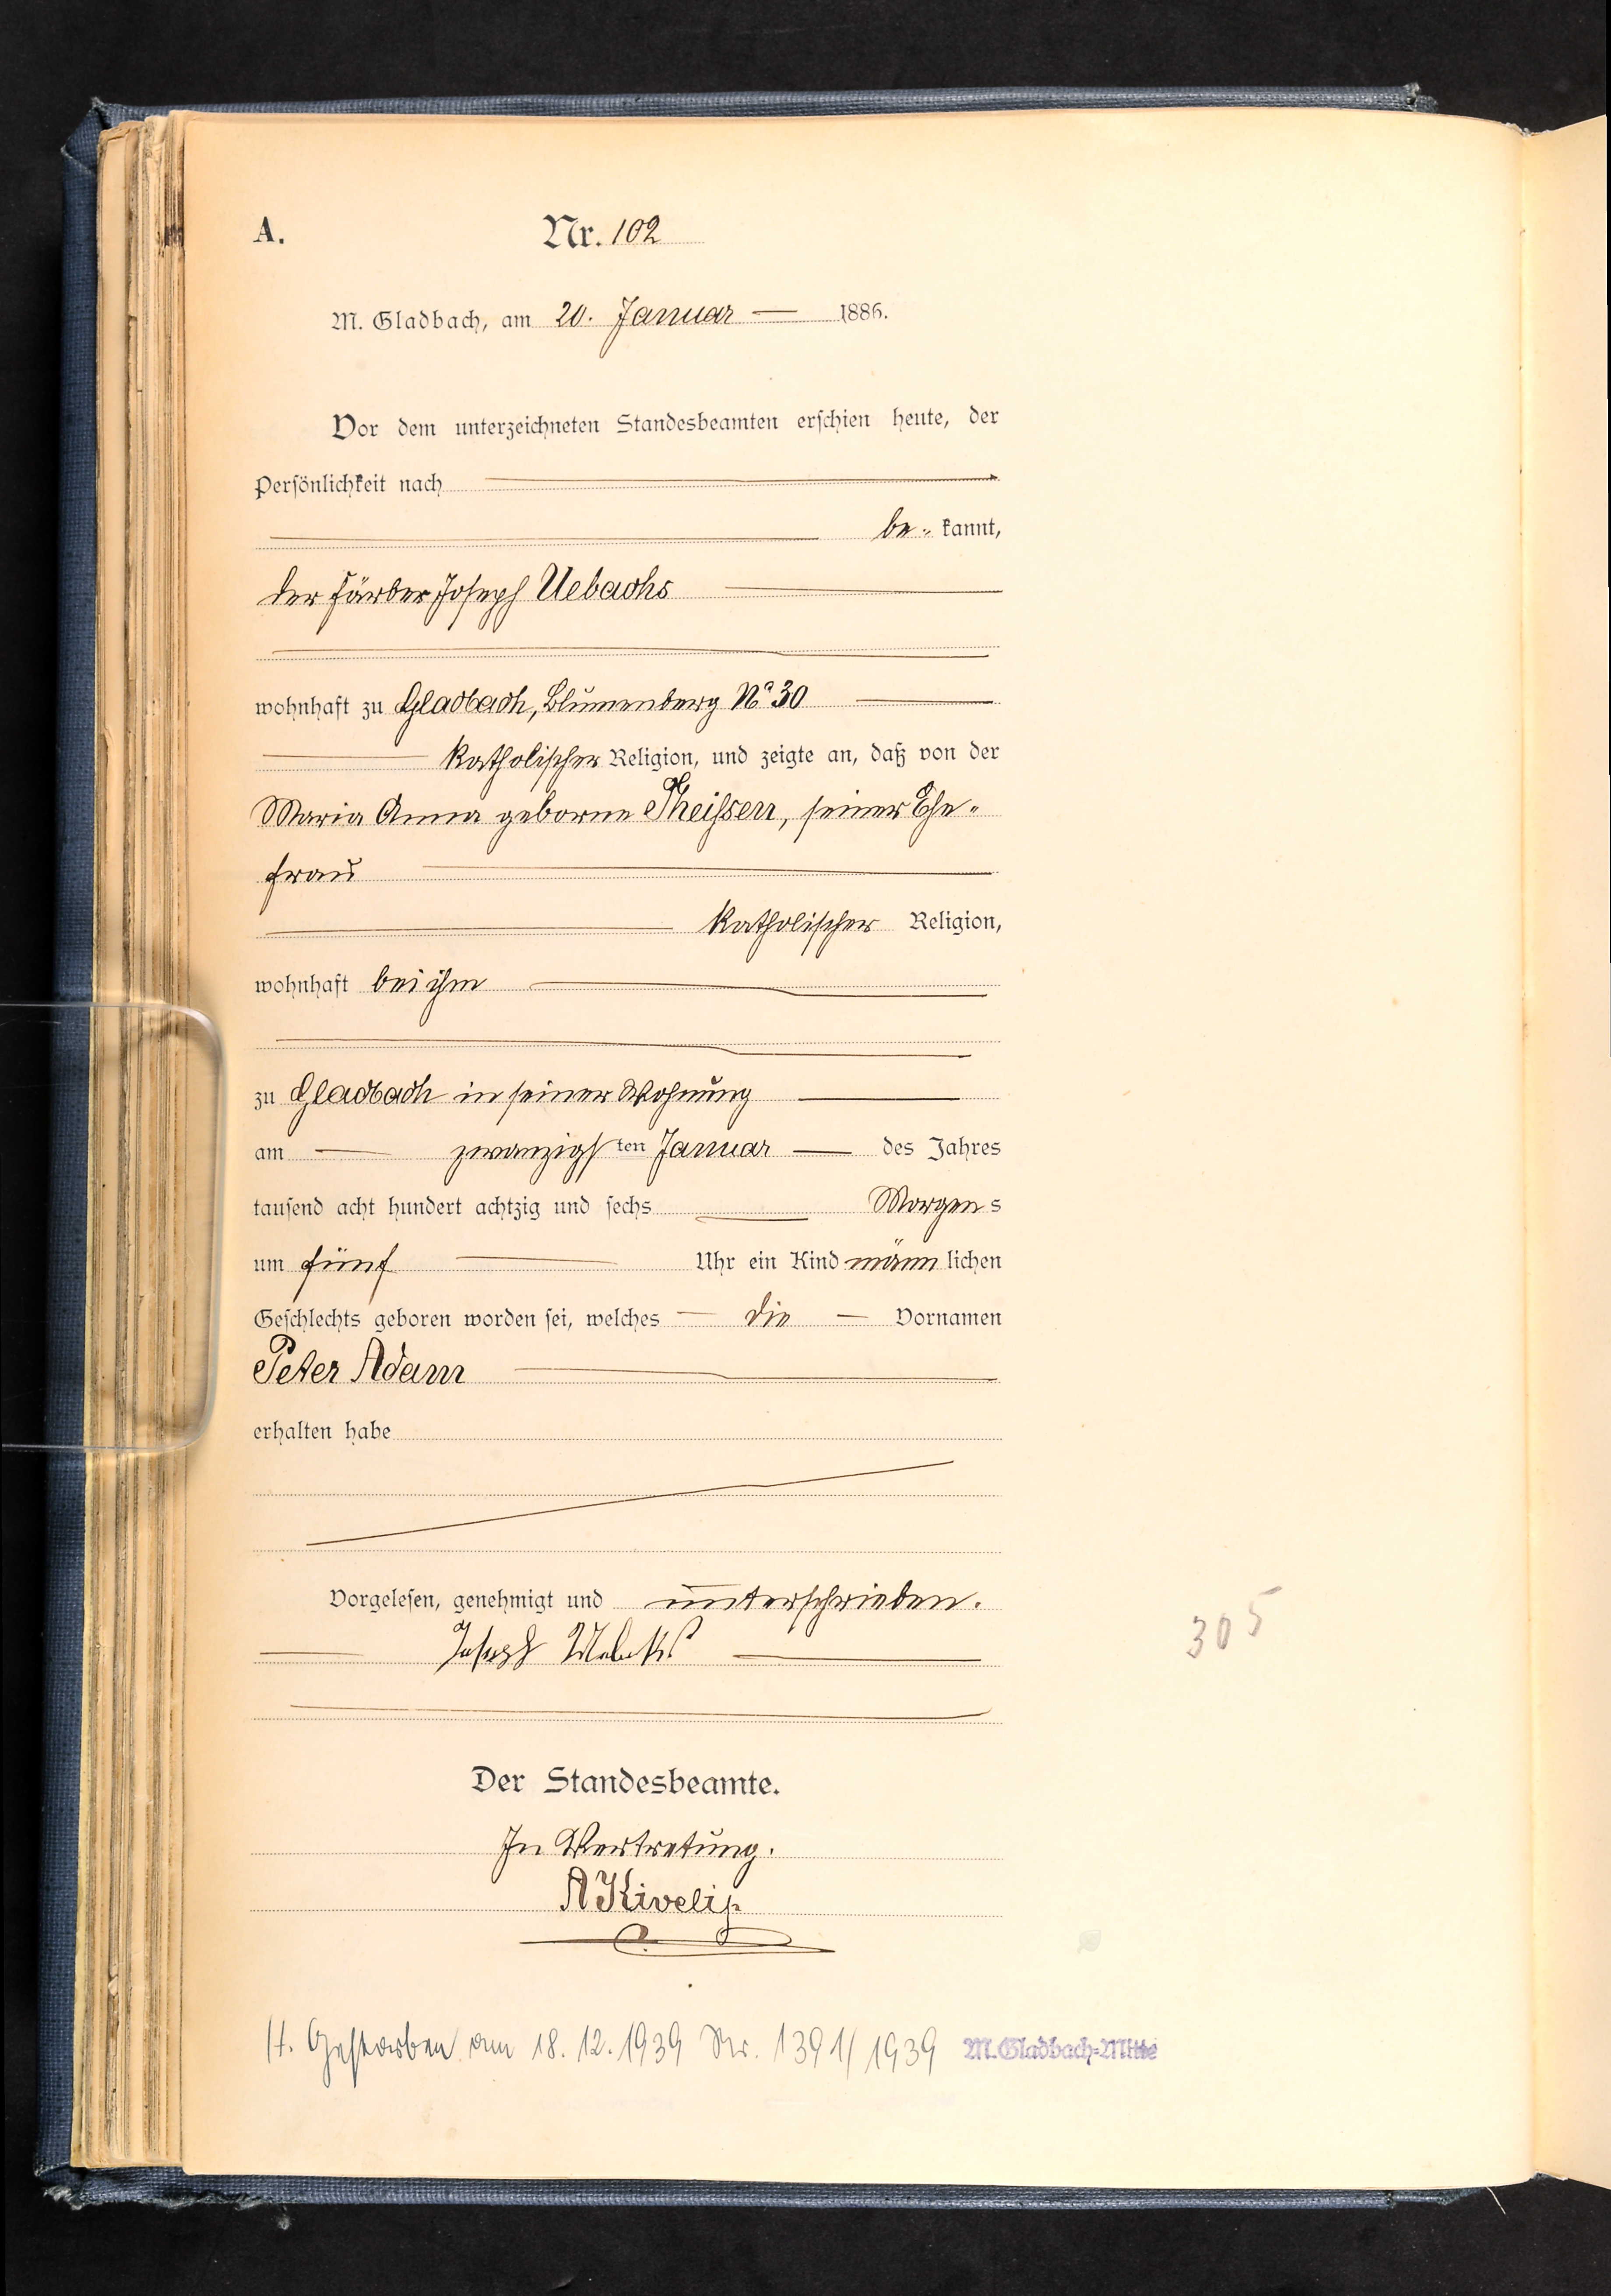 A.
Nr. 102
M. Gladbach, am 20. Januar — 1886.
Vor dem unterzeichneten Standesbeamten erschien heute, der
Persönlichkeit nach
be- kannt,
der Färber Joseph Uebachs
wohnhaft zu Gladbach, Blumenberg No 30
katholischer Religion, und zeigte an, daß von der
Maria Anna geborne Theißen, seiner Ehe-
frau
katholischer Religion,
wohnhaft bei ihm
zu Gladbach in seiner Wohnung
am — zwanzigsten Januar — des Jahres
tausend acht hundert achtzig und sechs Morgens
um fünf Uhr ein Kind männlichen
Geschlechts geboren worden sei, welches — die — Vornamen
Peter Adam
erhalten habe
Vorgelesen, genehmigt und unterschrieben.
Joseph Uebachs
305
Der Standesbeamte.
In Vertretung.
A Kivelip
H. Gestorben am 18.12.1939 Nr. 1391/1939 M. Gladbach-Mitte